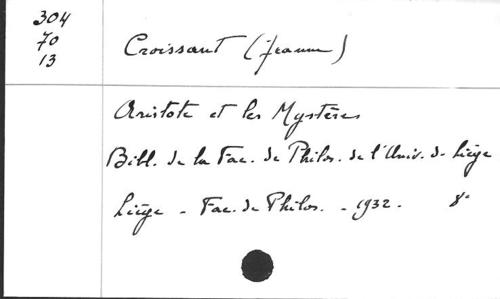 304
70
13
Croissant (Jeanne)
Aristote et les Mystères
Bibl. de la Fac. de Philos. de l'Univ. de Liège
Liège - Fac. de Philos. - 1932. 8°